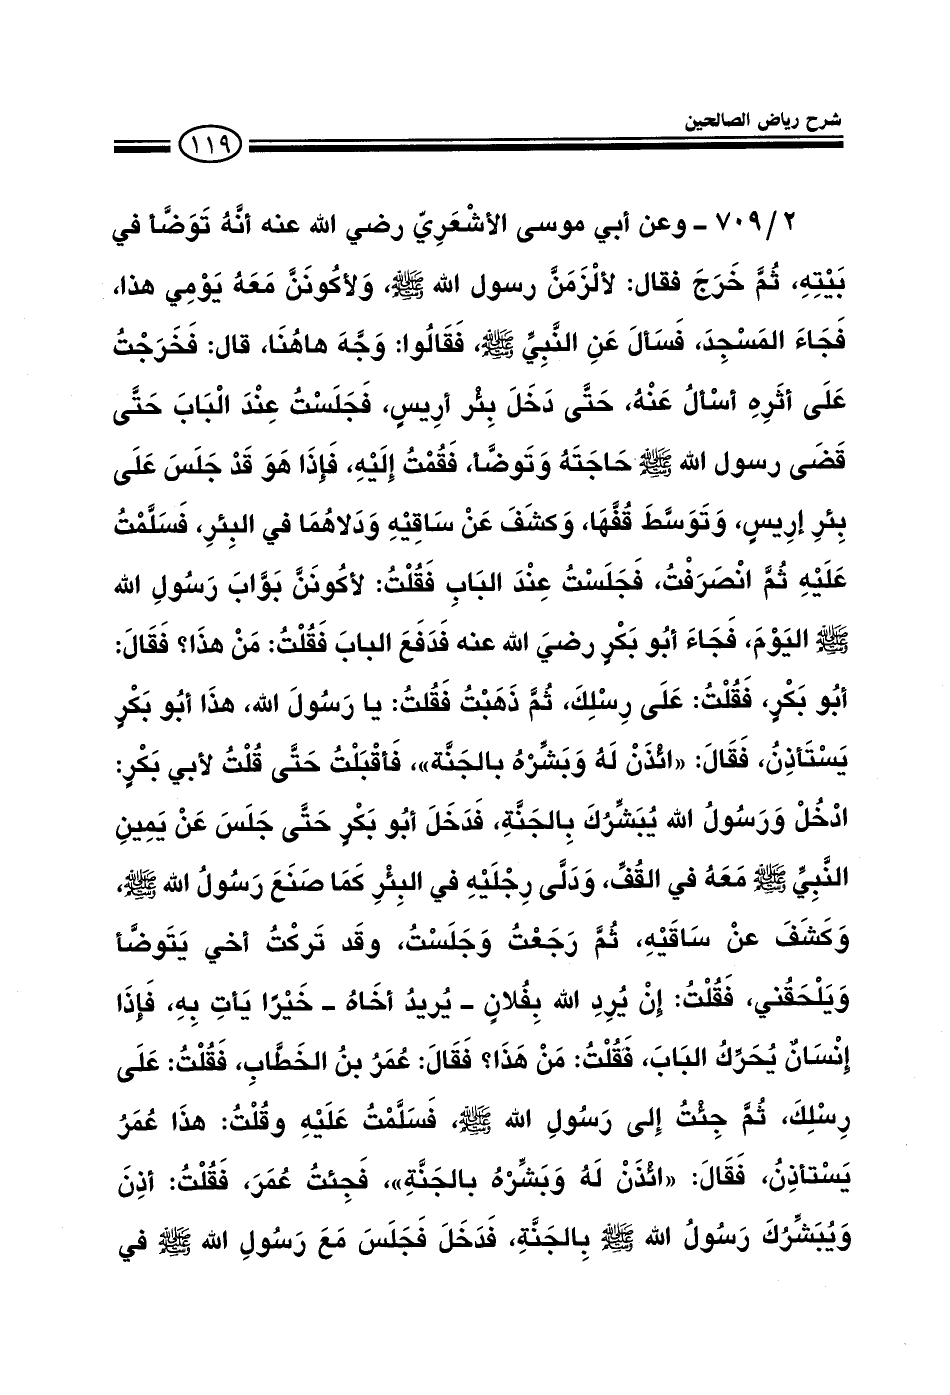 شرح رياض الصالحين
١١٩
٢/ ٧٠٩ ـ وعن أبي موسى الأشْعَرِيّ رضي الله عنه أنَّهُ تَوَضَّأ في
بَيْتِهِ، ثُمَّ خَرَجَ فقال: لألْزَمَنَّ رسول الله ﷺ، وَلأكُونَنَّ مَعَهُ يَوْمِي هذا،
فَجَاءَ المَسْجِدَ، فَسَألَ عَنِ النَّبِيِّ ﷺ، فَقَالُوا: وَجَّهَ هاهُنَا، قال: فَخَرَجْتُ
عَلَى أثَرِهِ أسْألُ عَنْهُ، حَتَّى دَخَلَ بِئْر أريس، فَجَلَسْتُ عِنْدَ الْبَابَ حَتَّى
قَضَى رسول الله ﷺ حَاجَتَهُ وَتَوضَّأ، فَقُمْتُ إلَيْهِ، فَإذَا هَوَ قَدْ جَلَسَ عَلَى
بِئرِ إريسٍ، وَتَوَسَّطَ قُفَّهَا، وَكشَفَ عَنْ سَاقِيْهِ وَدَلاهُمَا في البئرِ، فَسَلَّمْتُ
عَلَيْهِ ثُمَّ انْصَرَفْتُ، فَجَلَسْتُ عِنْدَ البَابِ فَقُلْتُ: لأكُونَنَّ بَوَّابَ رَسُولِ الله
ﷺ اليَوْمَ، فَجَاءَ أبُو بَكْرٍ رضيَ الله عنه فَدَفَعَ البابَ فَقُلْتُ: مَنْ هذَا؟ فَقَالَ:
أبُو بَكْرٍ، فَقُلْتُ: عَلَى رِسْلِكَ، ثُمَّ ذَهَبْتُ فَقُلتُ: يا رَسُولَ الله، هذَا أبُو بَكْرٍ
يَسْتَأذِنُ، فَقَالَ: «ائْذَنْ لَهُ وَبَشِّرْهُ بالجَنَّة»، فَأقْبَلْتُ حَتَّى قُلْتُ لأبي بَكْرٍ:
ادْخُلْ وَرَسُولُ الله يُبَشِّرُكَ بِالجَنَّةِ، فَدَخَلَ أبُو بَكْرٍ حَتَّى جَلَسَ عَنْ يَمِينِ
النَّبِيِّ ﷺ مَعَهُ في القُفِّ، وَدَلَّى رِجْلَيْهِ في البئْرِ كَمَا صَنَعَ رَسُولُ الله ﷺ،
وَكَشَفَ عنْ سَاقَيْهِ، ثُمَّ رَجَعْتُ وَجَلَسْتُ، وقد تَركْتُ أخي يَتَوضَّأ
وَيَلْحَقُني، فَقُلْتُ: إنْ يُرِدِ الله بِفُلانٍ ـ يُريدُ أخَاهُ ـ خَيْرًا يَأتِ بِهِ، فَإذَا
إنْسَانٌ يُحَرِّكُ البَابَ، فَقُلْتُ: مَنْ هَذَا؟ فَقَالَ: عُمَرُ بنُ الخَطَّابِ، فَقُلْتُ: عَلَى
رِسْلِكَ، ثُمَّ جِئْتُ إلى رَسُولِ الله ﷺ، فَسَلَّمْتُ عَلَيْهِ وقُلْتُ: هذَا عُمَرُ
يَسْتأذِنُ، فَقَالَ: «ائْذَنْ لَهُ وَبَشِّرْهُ بالجَنَّةِ»، فَجِئتُ عُمَرَ، فَقُلْتُ: أذِنَ
وَيُبَشِّرُكَ رَسُولُ الله ﷺ بِالجَنَّةِ، فَدَخَلَ فَجَلَسَ مَعَ رَسُولِ الله ﷺ في